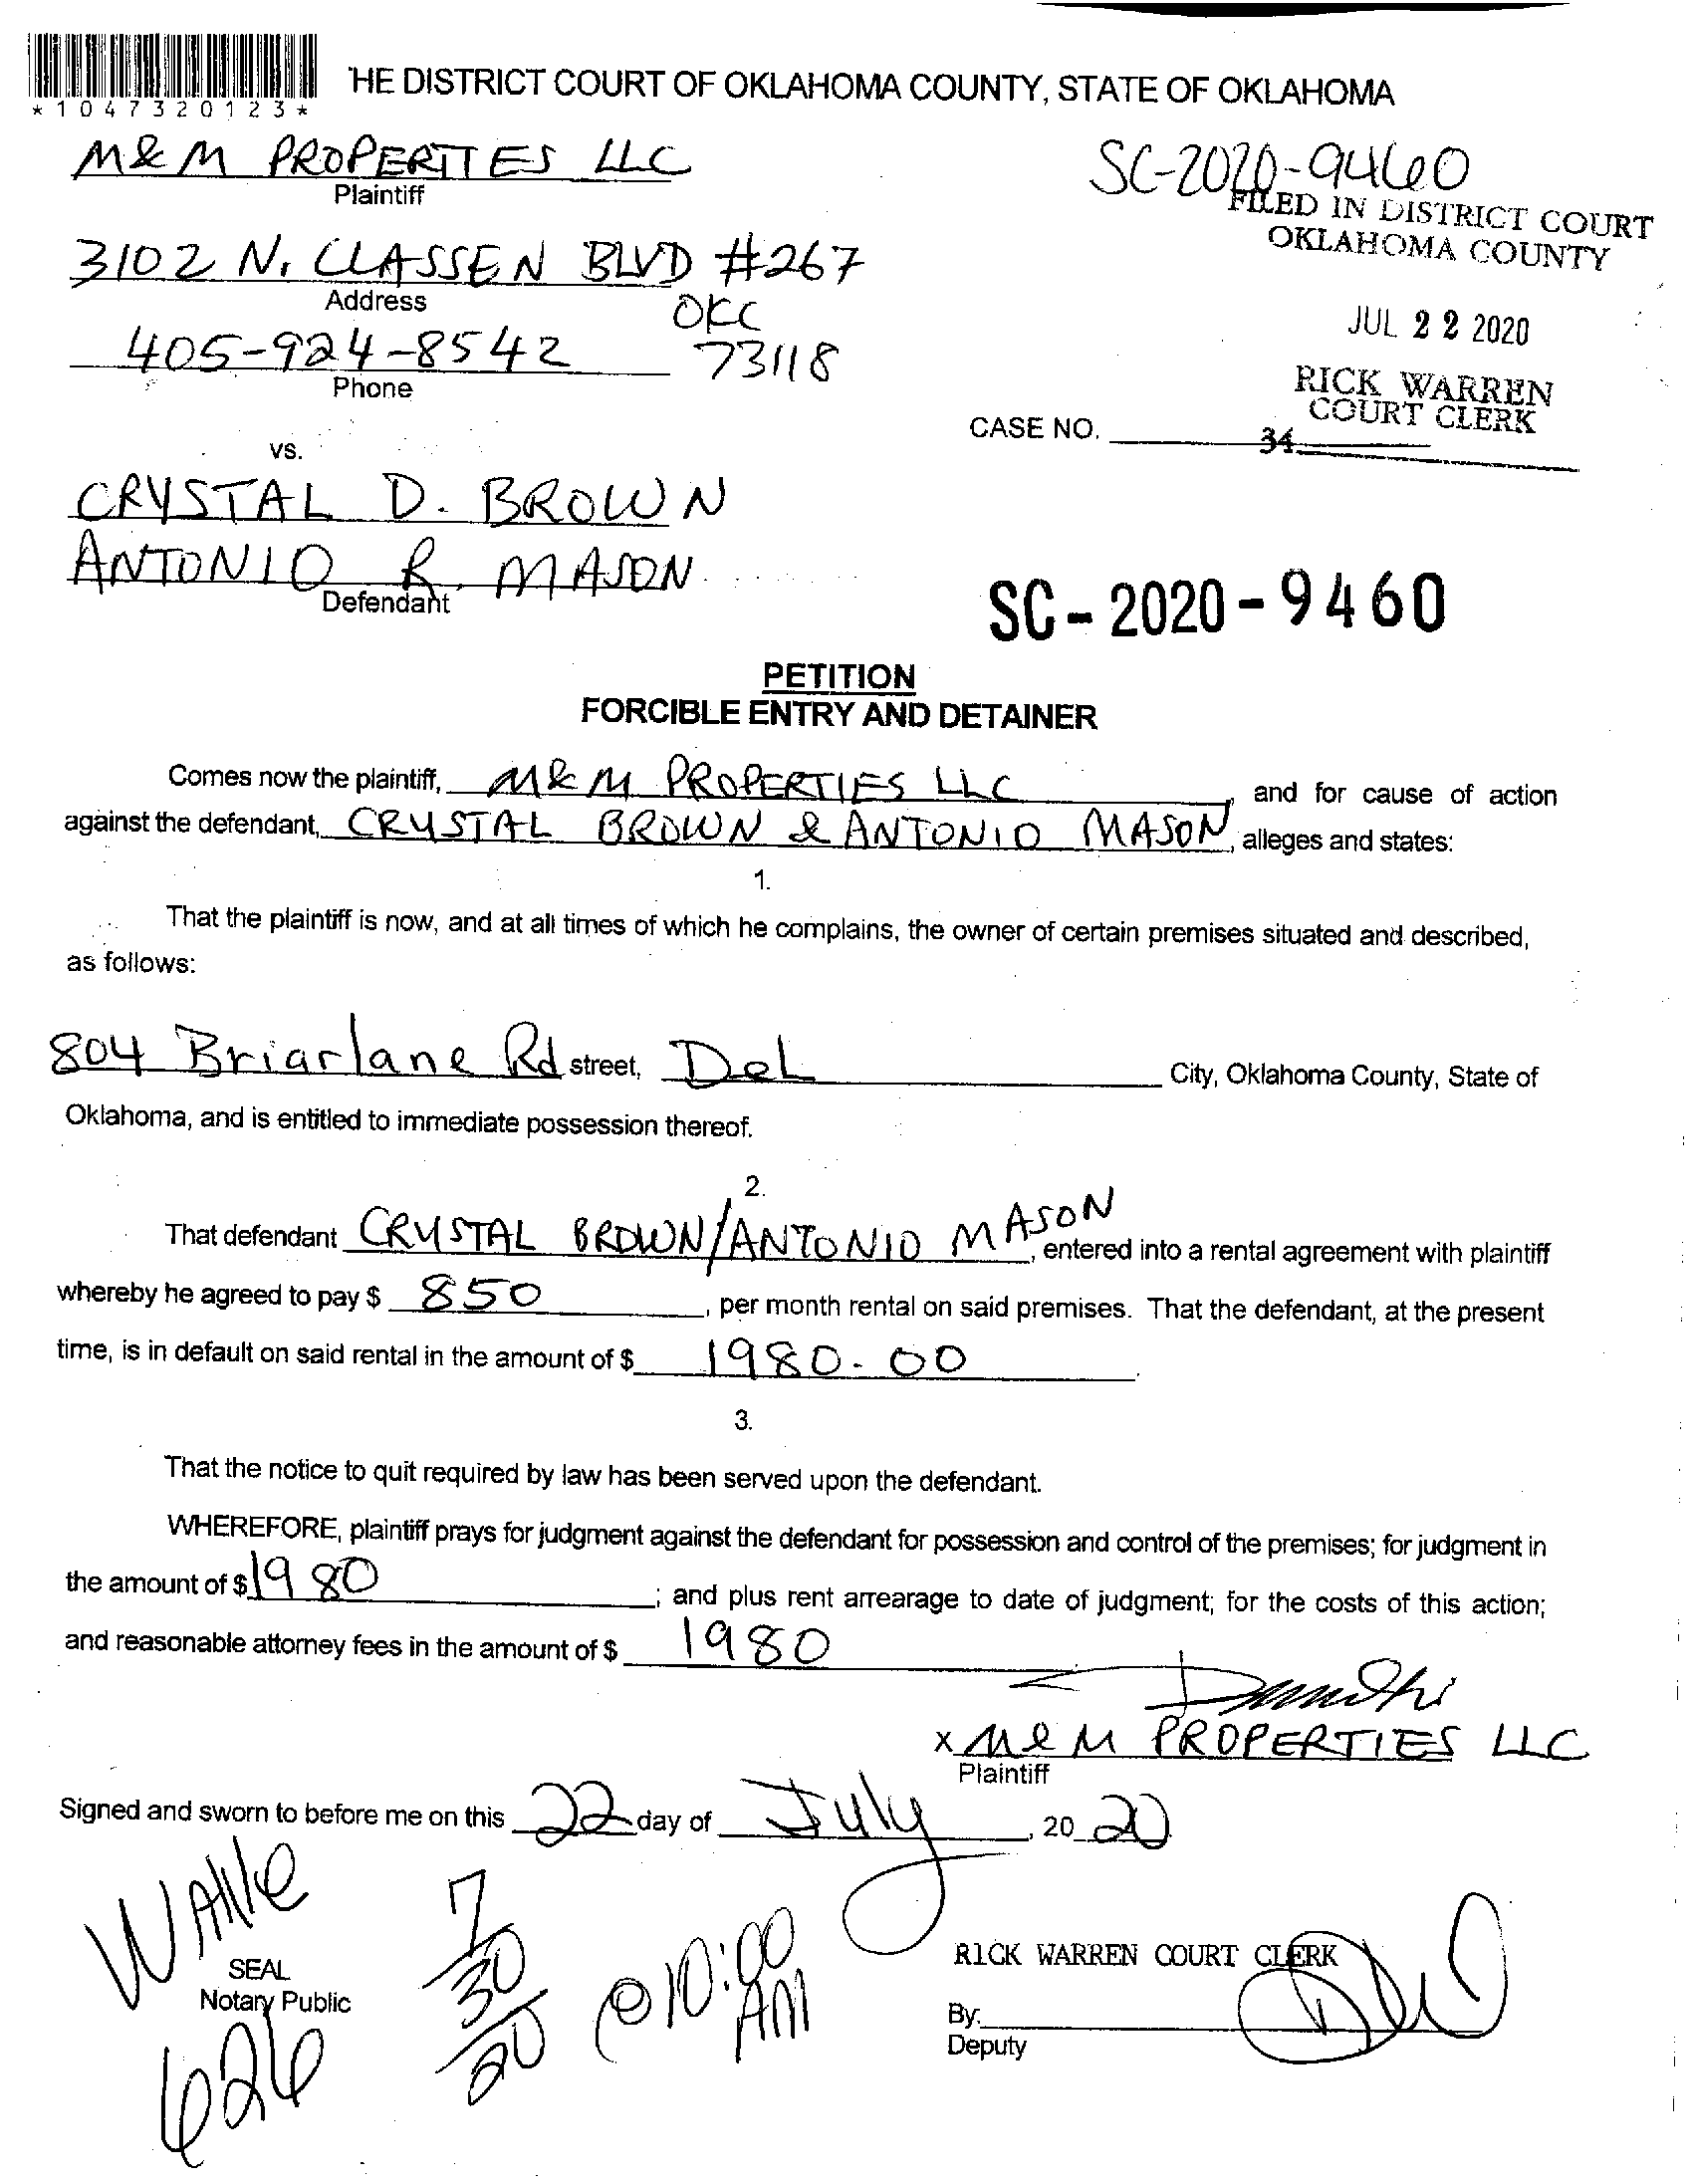 *1047320123*
HE DISTRICT COURT OF OKLAHOMA COUNTY, STATE OF OKLAHOMA
M&M PROPERTIES LLC
Plaintiff
SC-2020-9460
FILED IN DISTRICT COURT
OKLAHOMA COUNTY
3102 N. CLASSEN BLVD #267
Address
OKC
73118
405-924-8542
Phone
JUL 22 2020
RICK WARREN
COURT CLERK
CASE NO.
34
vs.
CRYSTAL D. BROWN
ANTONIO R. MASON
Defendant
SC-2020-9460
PETITION
FORCIBLE ENTRY AND DETAINER
Comes now the plaintiff, M&M PROPERTIES LLC, and for cause of action
against the defendant, CRYSTAL BROWN & ANTONIO MASON, alleges and states:
1.
That the plaintiff is now, and at all times of which he complains, the owner of certain premises situated and described,
as follows:
804 Briarlane Rd street, Del City, Oklahoma County, State of
Oklahoma, and is entitled to immediate possession thereof.
2.
That defendant CRYSTAL BROWN/ANTONIO MASON, entered into a rental agreement with plaintiff
whereby he agreed to pay $ 850, per month rental on said premises. That the defendant, at the present
time, is in default on said rental in the amount of $ 1980.00.
3.
That the notice to quit required by law has been served upon the defendant.
WHEREFORE, plaintiff prays for judgment against the defendant for possession and control of the premises; for judgment in
the amount of $ 1980; and plus rent arrearage to date of judgment; for the costs of this action;
and reasonable attorney fees in the amount of $ 1980
x M&M PROPERTIES LLC
Plaintiff
Signed and sworn to before me on this 22 day of July, 20 20
SEAL
Notary Public
626
7/30/20 @ 10:00 AM
RICK WARREN COURT CLERK
By:
Deputy